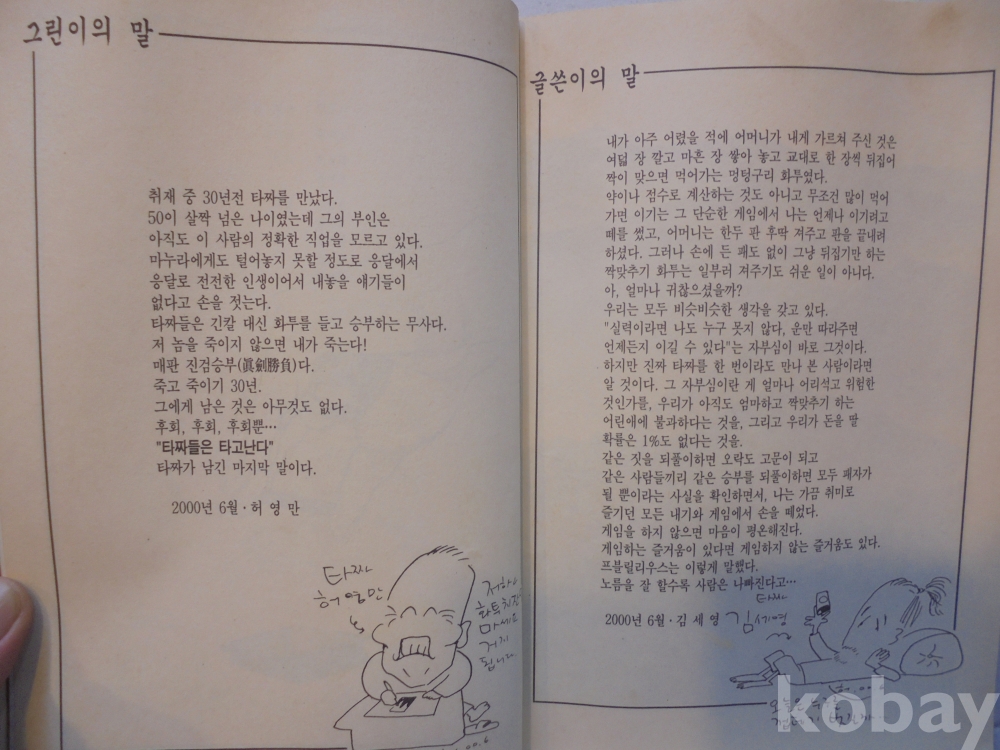 그린이의 말
취재 중 30년전 타짜를 만났다.
50이 살짝 넘은 나이였는데 그의 부인은
아직도 이 사람의 정확한 직업을 모르고 있다.
마누라에게도 털어놓지 못할 정도로 응달에서
응달로 전전한 인생이어서 내놓을 얘기들이
없다고 손을 젓는다.
타짜들은 긴칼 대신 화투를 들고 승부하는 무사다.
저 놈을 죽이지 않으면 내가 죽는다!
매판 진검승부(眞劍勝負)다.
죽고 죽이기 30년.
그에게 남은 것은 아무것도 없다.
후회, 후회, 후회뿐…
"타짜들은 타고난다"
타짜가 남긴 마지막 말이다.
2000년 6월·허영만
타짜
허영만
화투치지
마세요
거지
됩니다
글쓴이의 말
내가 아주 어렸을 적에 어머니가 내게 가르쳐 주신 것은
여덟 장 깔고 마흔 장 쌓아 놓고 교대로 한 장씩 뒤집어
짝이 맞으면 먹어가는 멍텅구리 화투였다.
약이나 점수로 계산하는 것도 아니고 무조건 많이 먹어
가면 이기는 그 단순한 게임에서 나는 언제나 이기려고
떼를 썼고, 어머니는 한두 판 후딱 져주고 판을 끝내려
하셨다. 그러나 손에 든 패도 없이 그냥 뒤집기만 하는
짝맞추기 화투는 일부러 져주기도 쉬운 일이 아니다.
아, 얼마나 귀찮으셨을까?
우리는 모두 비슷비슷한 생각을 갖고 있다.
"실력이라면 나도 누구 못지 않다, 운만 따라주면
언제든지 이길 수 있다"는 자부심이 바로 그것이다.
하지만 진짜 타짜를 한 번이라도 만나 본 사람이라면
알 것이다. 그 자부심이란 게 얼마나 어리석고 위험한
것인가를, 우리가 아직도 엄마하고 짝맞추기 하는
어린애에 불과하다는 것을, 그리고 우리가 돈을 딸
확률은 1%도 없다는 것을.
같은 짓을 되풀이하면 오락도 고문이 되고
같은 사람들끼리 같은 승부를 되풀이하면 모두 패자가
될 뿐이라는 사실을 확인하면서, 나는 가끔 취미로
즐기던 모든 내기와 게임에서 손을 떼었다.
게임을 하지 않으면 마음이 평온해진다.
게임하는 즐거움이 있다면 게임하지 않는 즐거움도 있다.
프블릴리우스는 이렇게 말했다.
노름을 잘 할수록 사람은 나빠진다고…
타짜
2000년 6월·김세영 김세영
kobay